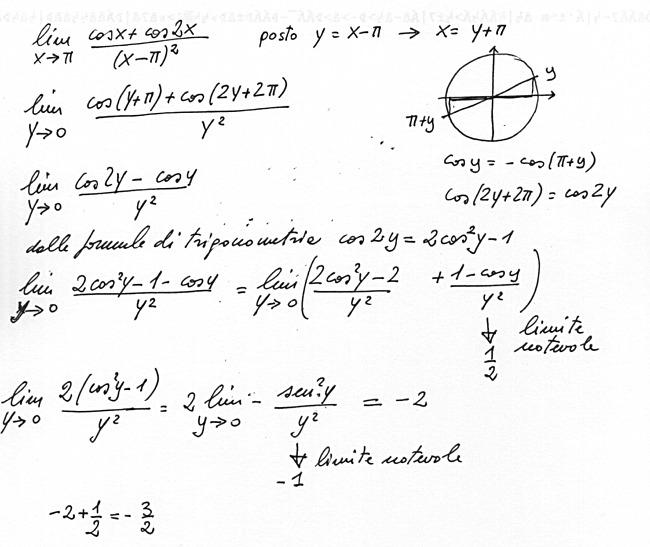 lim x→π (cosx + cos2x)/(x-π)² posto y = x-π → x = y+π
lim y→0 (cos(y+π) + cos(2y+2π))/y²
y
π+y
cosy = -cos(π+y)
lim y→0 (cos2y - cosy)/y²
cos(2y+2π) = cos2y
dalle formule di trigonometria cos2y = 2cos²y-1
lim y→0 (2cos²y-1-cosy)/y² = lim y→0 ((2cos²y-2)/y² + (1-cosy)/y²)
↓ limite notevole
1/2
lim y→0 2(cos²y-1)/y² = 2 lim y→0 - sen²y/y² = -2
↓ limite notevole
-1
-2 + 1/2 = - 3/2